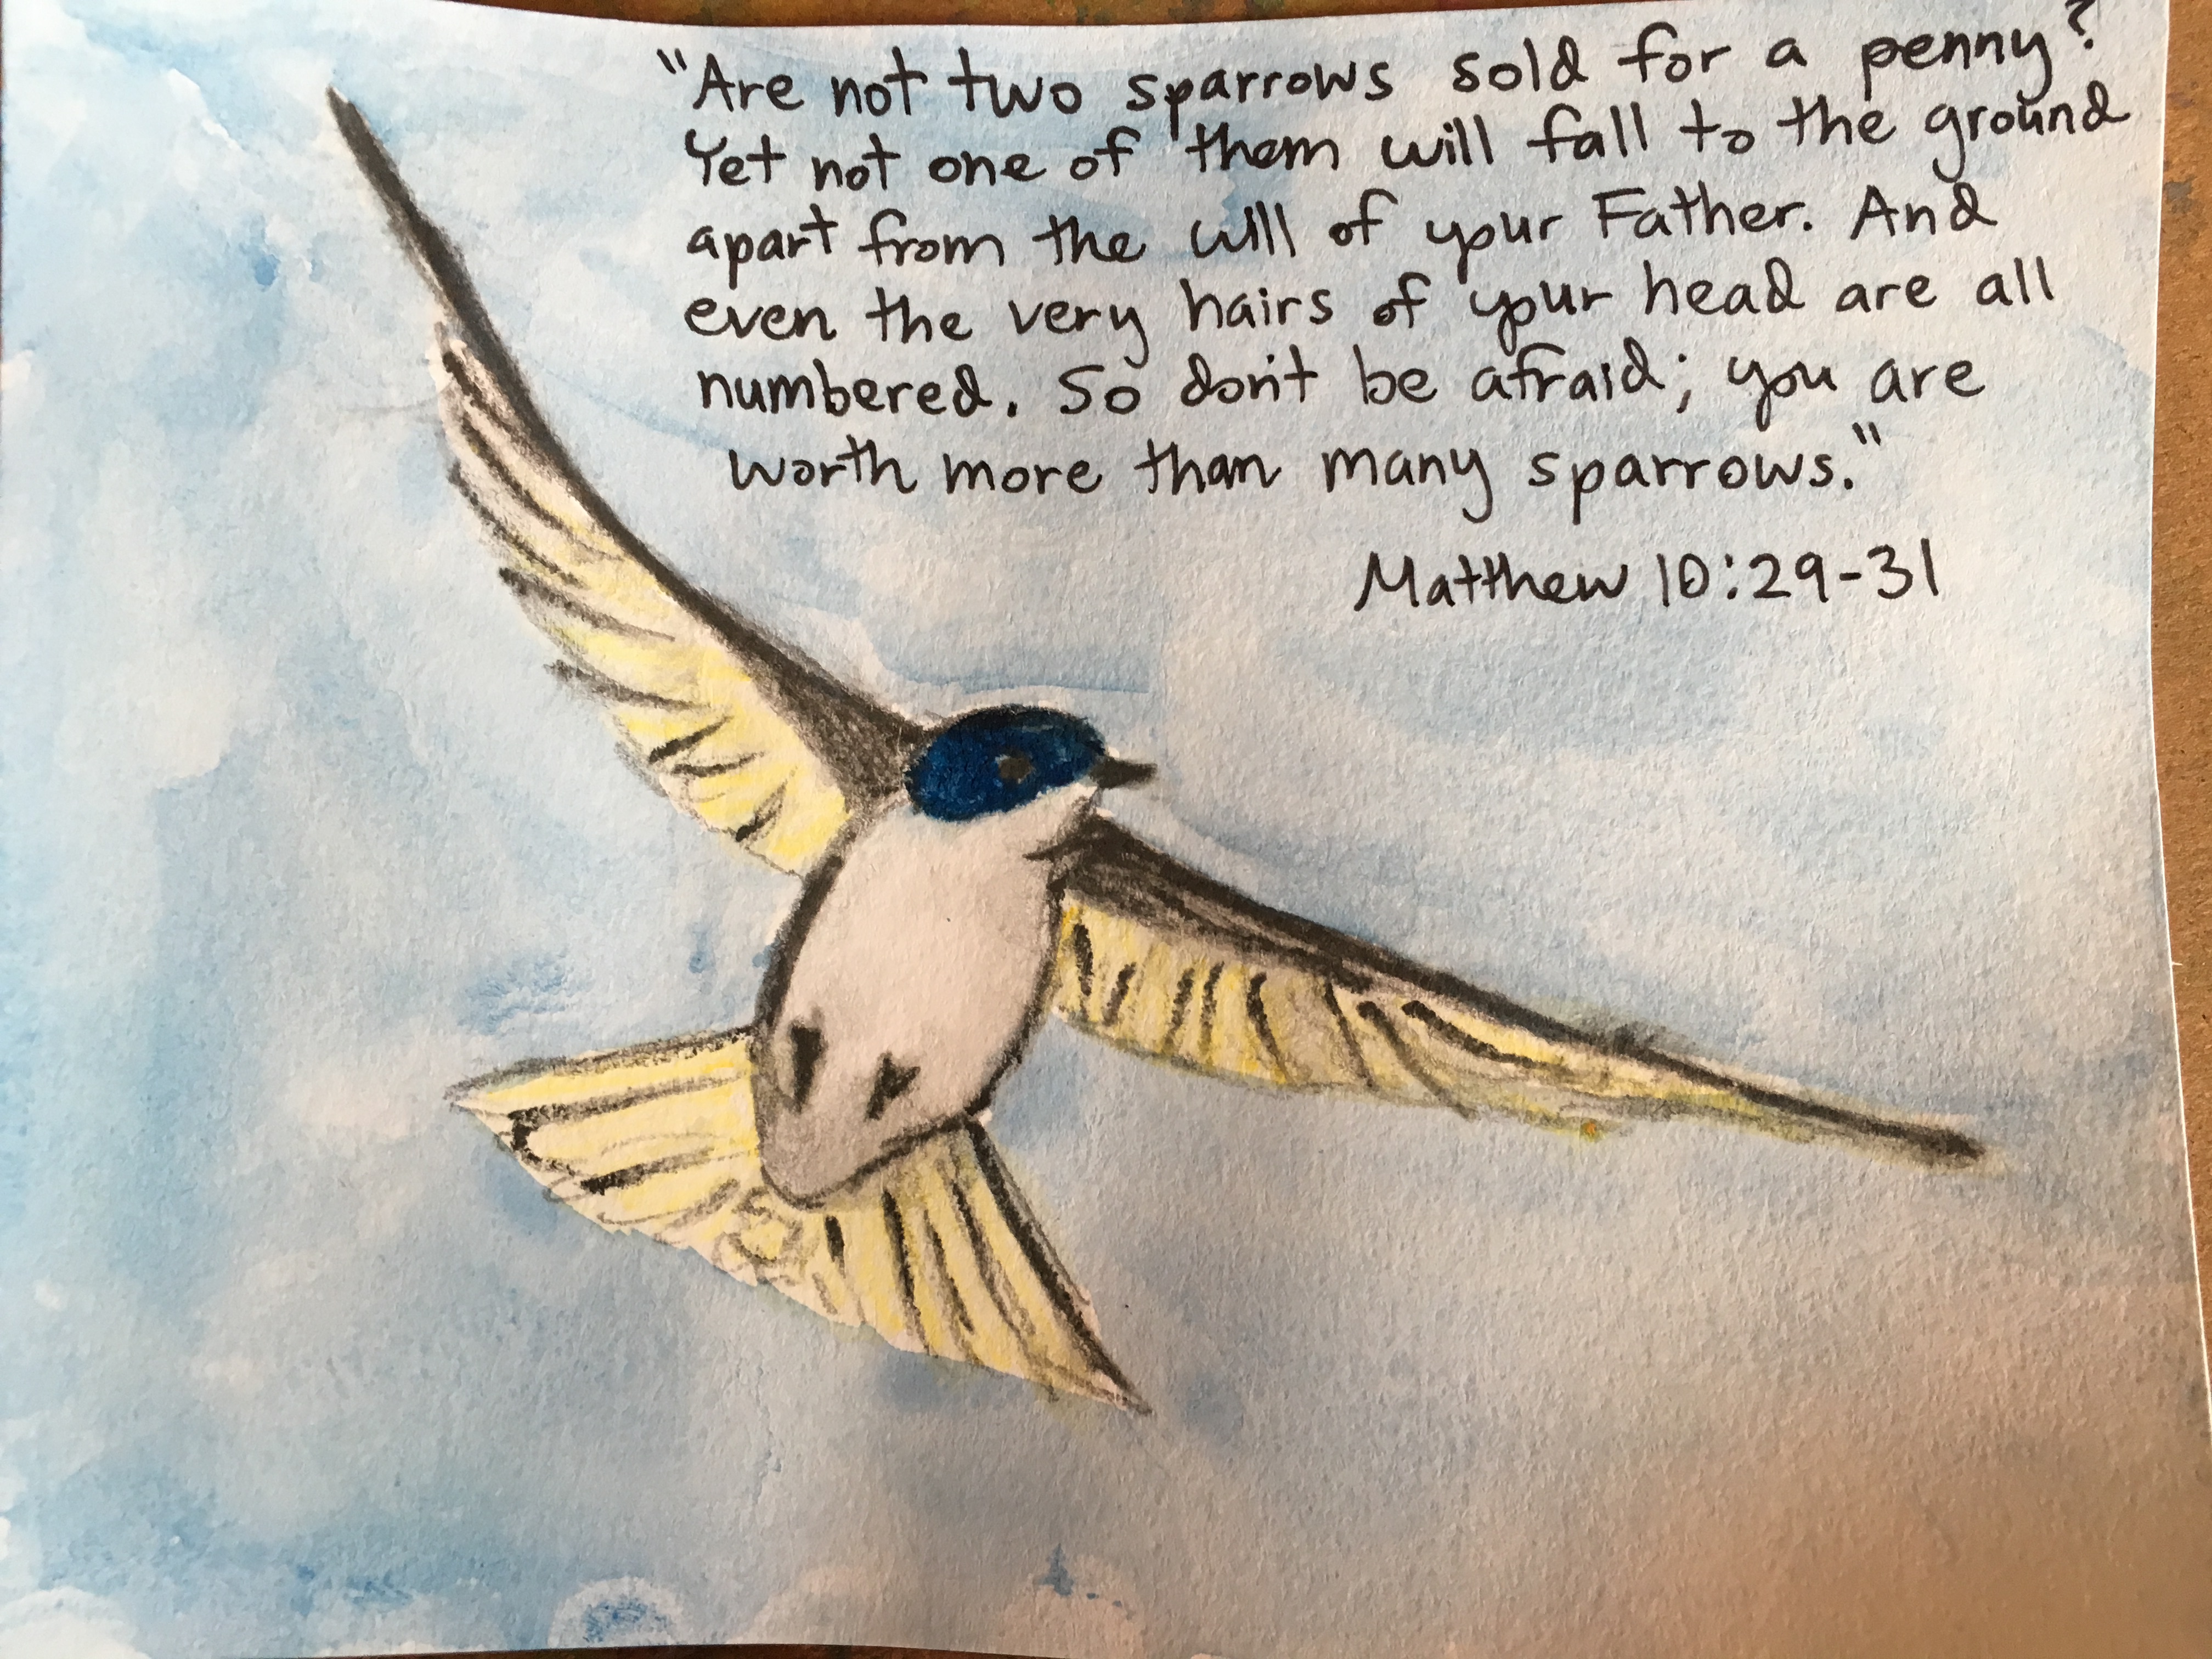 "Are not two sparrows sold for a penny?
Yet not one of them will fall to the ground
apart from the will of your Father. And
even the very hairs of your head are all
numbered. So don't be afraid; you are
worth more than many sparrows."
Matthew 10:29-31